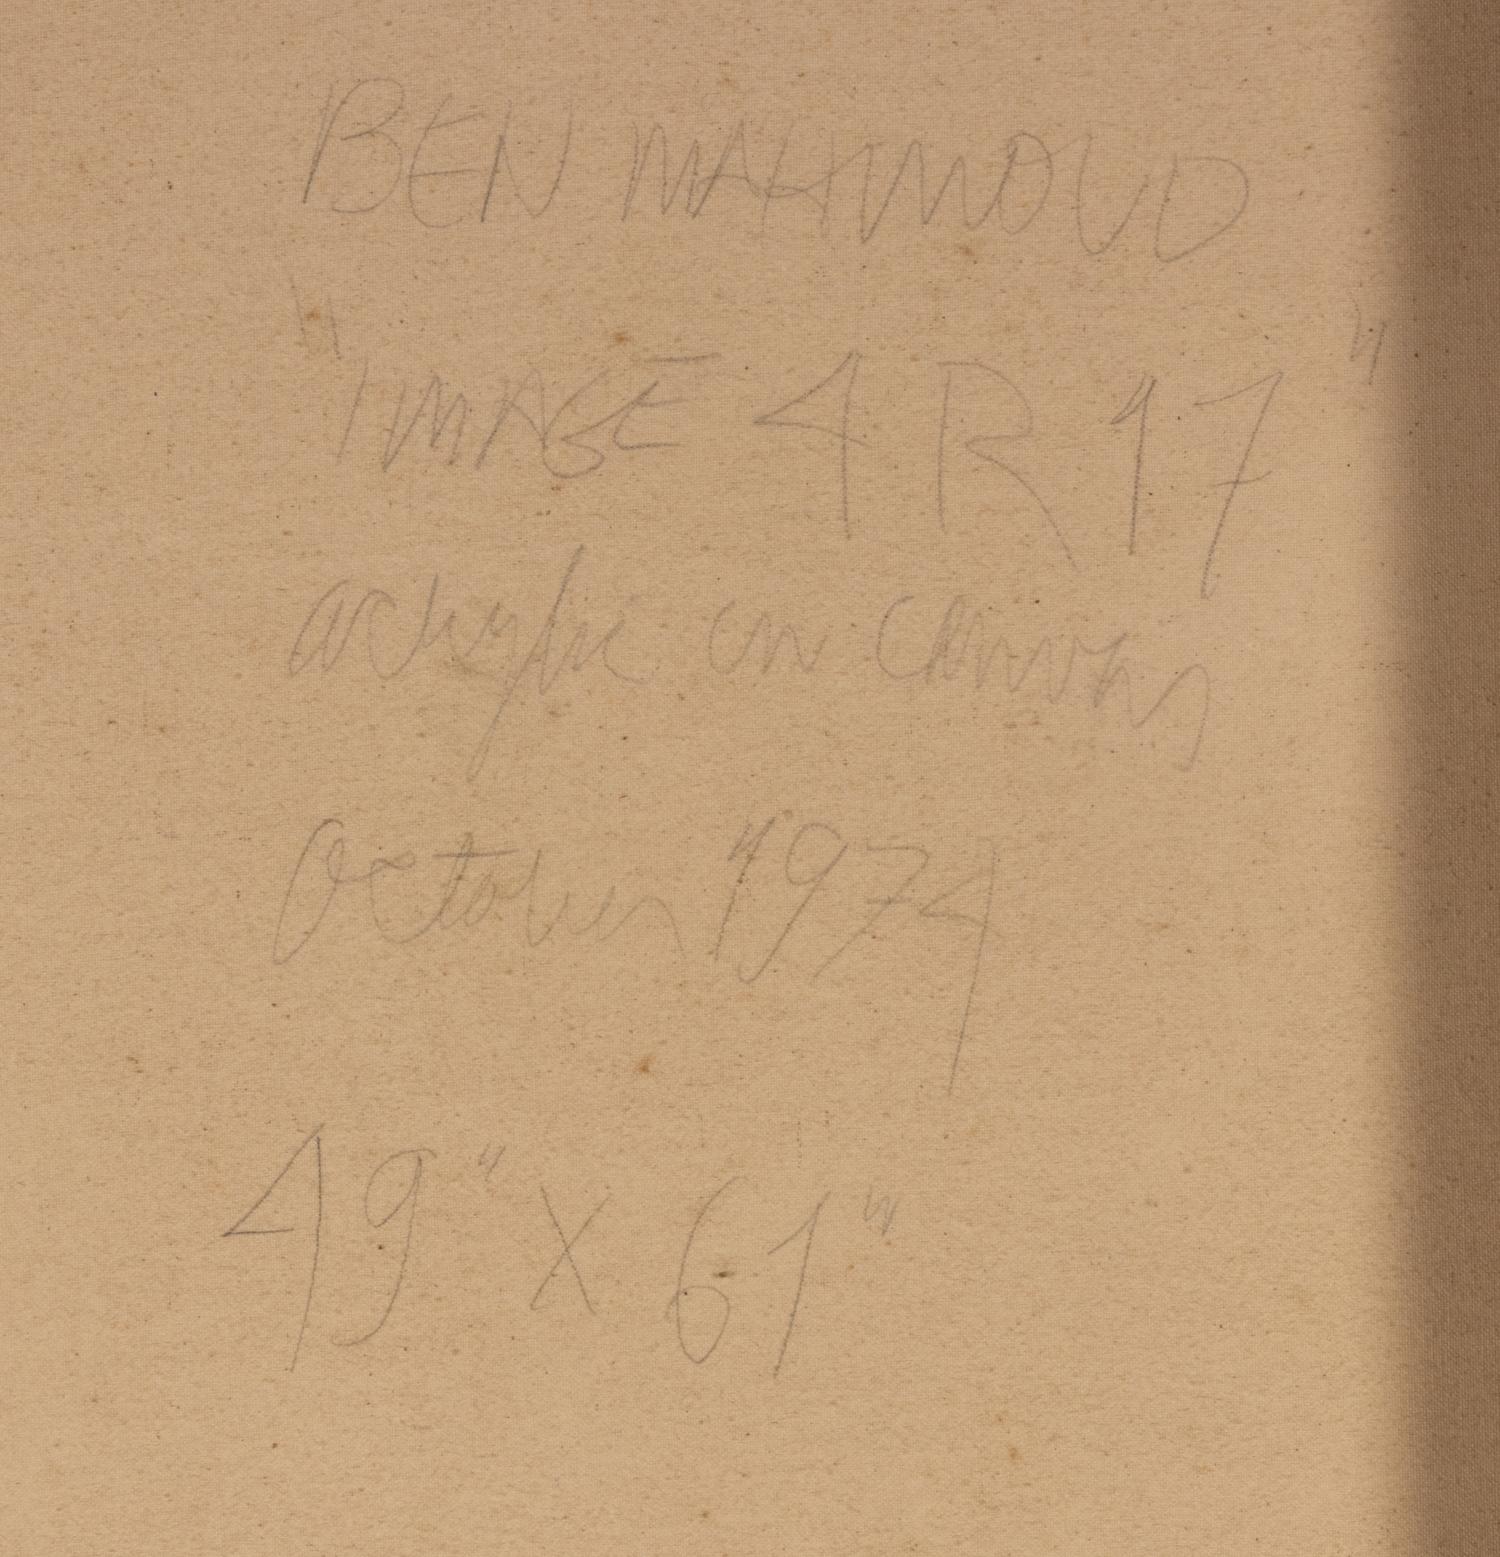 BEN MAHMOUD
"IMAGE 4 R 17"
acrylic on canvas
October 1974
49" X 61"